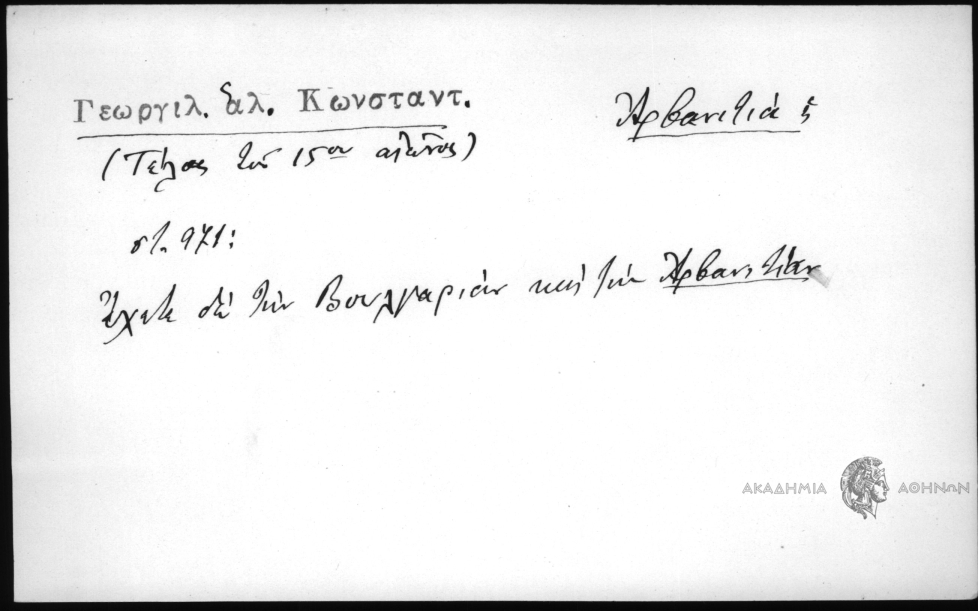 Γεωργιλ. ἁλ. Κωνσταντ.
Ἀρβανιτιά ἡ
(Τέλος τοῦ 15ου αἰῶνος)
στ. 971:
Ἔχετε δὲ τὴν Βουλγαριὰν καὶ τὴν Ἀρβανιτιὰν
ΑΚΑΔΗΜΙΑ ΑΘΗΝΩΝ